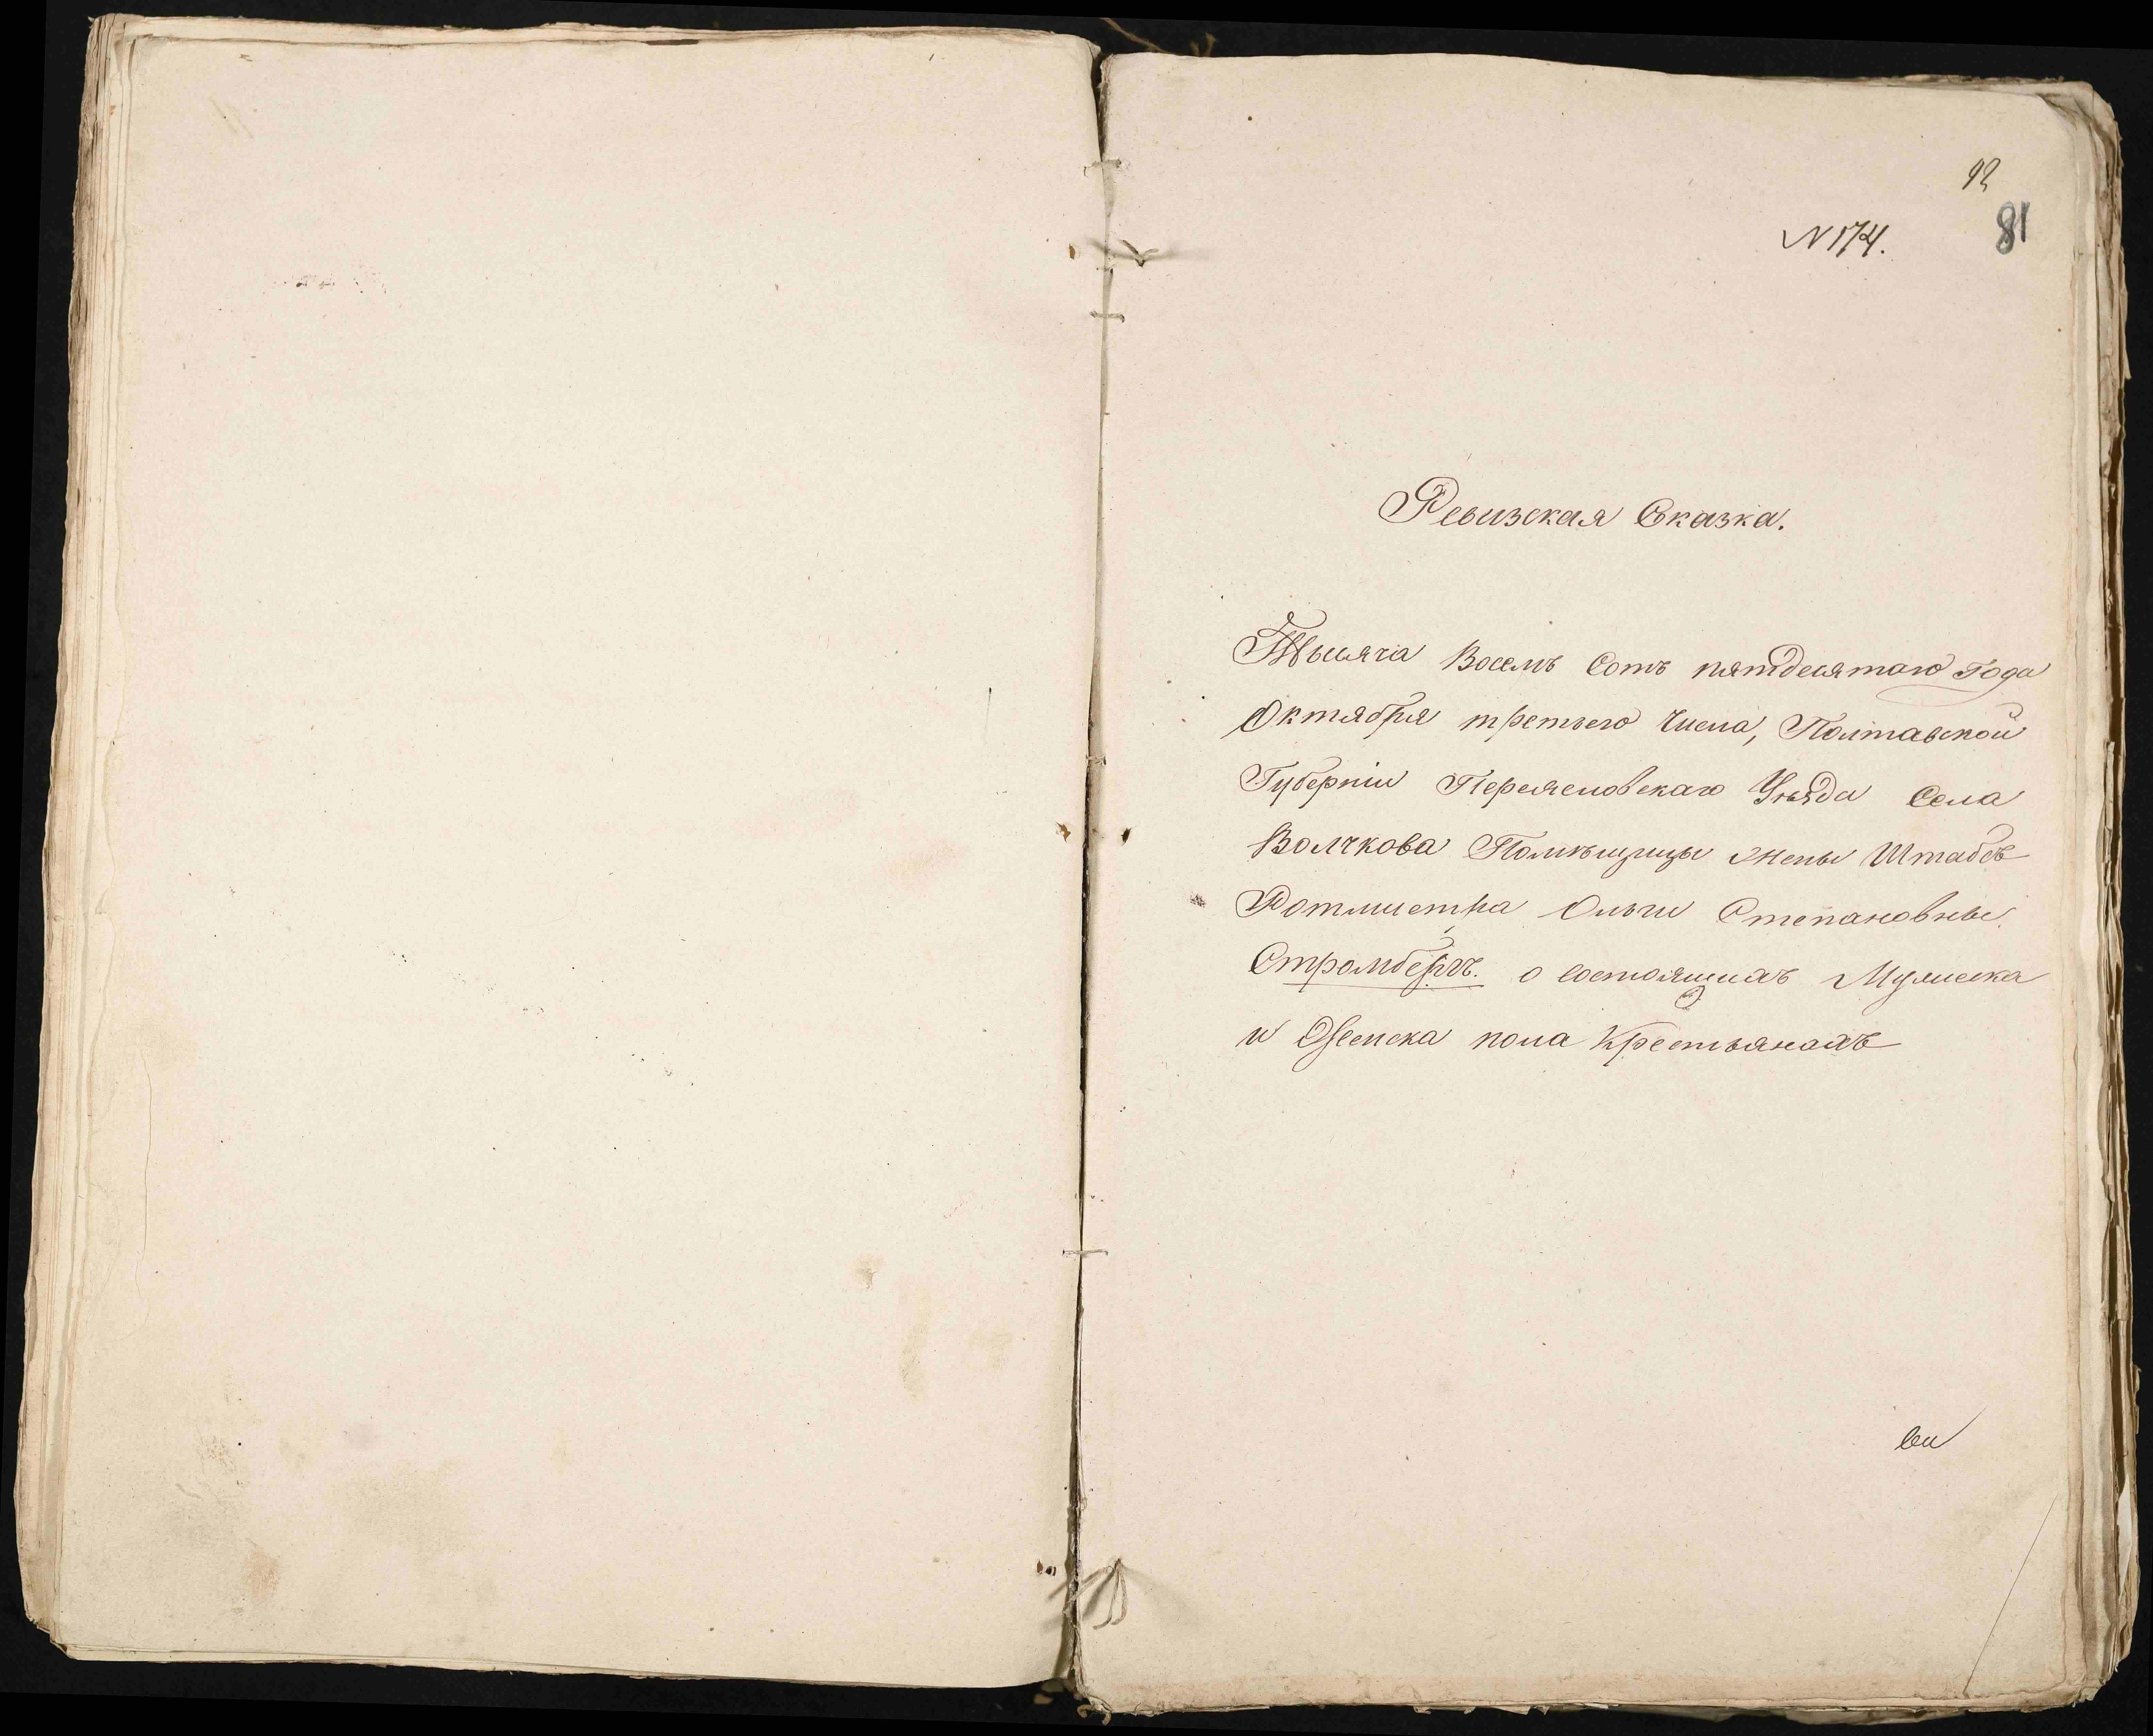 92
N 174.
81
Ревизская Сказка.
Тысяча Восемь Сотъ пятдесятаго года
Октября третьего Числа, Полтавской
Губерніи Переясловскаго Уѣзда Села
Волчкова Помѣщицы жены Штабсъ
Ротмистра Ольги Степановны
Стромбергъ. о состоящихъ Мужеска
и Женска пола Крестьянахъ